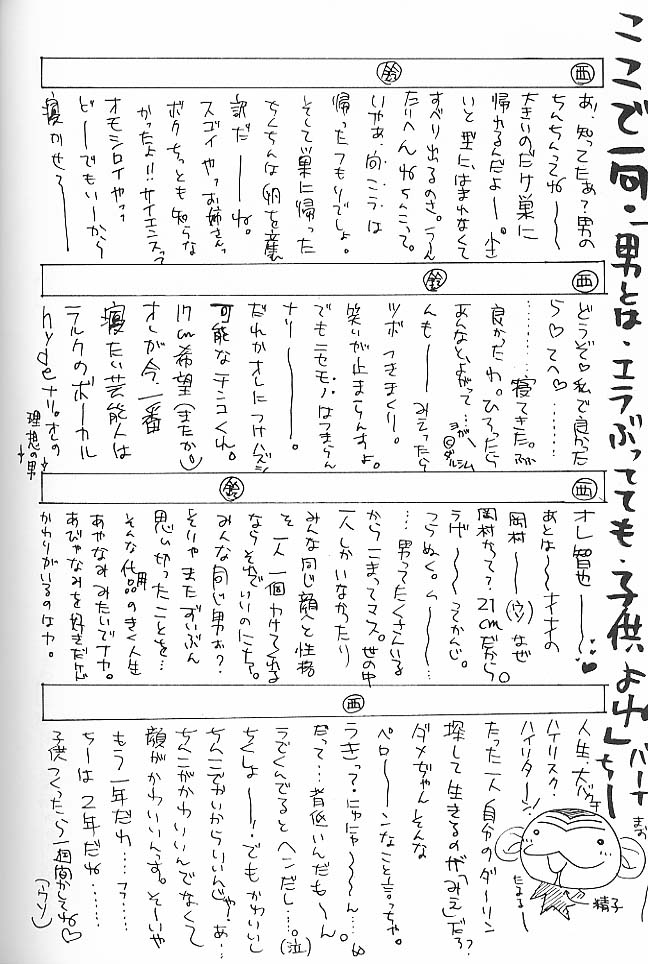 ここで一句・「男とは・エラぶってても・子供よね」バーイちー
西
鈴
あ、知ってたぁ?男の
ちんちんってね〜〜
大きいのだけ巣に
帰れるんだよー。小さ
いと型にはまれなくて
すべり出るのさ。うーん
たいへんねちんこって。
いやあ、向こうは
帰ったつもりでしょ。
そして巣に帰った
ちくちんは卵を産む
訳だーーね。
スゴイやっお姉さんっ
ボクちっとも知らな
かったよ!!サイエンスっ
オモシロイやっっ
どーーでもいーから
寝かせろーーー
西
鈴
どうぞ♡私で良かった
ら♡てへ♡………
………寝てきた。
良かったわ。ひろったら
あんなによがって…
ヨガ
ダルシム
んもーーーみえったら
ツボつきまくり。
笑いが止まらんすよ。
でもニセモノはつまらん
ナリーーーー。
だれかオレにつけハズシ
可能なチンコくれ。
17cm希望(またか。)
オレが今、一番
寝たい芸能人は
ラルクのボーカル
hydeナリ。オの
理想の男
西
鈴
オレ智也ーーー…♡
あとは〜ナイナイの
岡村ーー(ウソ)なぜ
岡村かって?21cmだから。
ラゲ〜〜ってかんじ。
つらぬく。う〜〜〜
…男ってたくさんいる
からこまってマス。世の中
一人しかいなかったり
みんな同じ顔へと性格
を一人一個わけてくれる
ならそれでいいのにナァ。
みんな同じ男お?
そいやまたずいぶん
思い切ったことを…
そんな代用品のきく人生
あやなみみたいでナカ。
あびゃなみを好きだけど
かわりがいるのはカ。
西
人生、大バクチ
ハイリスク・
ハイリターン!
たった一人自分のダーリン
探して生きるのが「みえ」だろ?
ダメぢゃんそんな
ペローーンなこと言っちゃ。
うきって・にゅにゃ〜〜ん…
だって…背低いんだも〜ん。
ラでくんでるとヘンだし…。(泣)
ちくしょーー!でもかわいい
ちんこでかいからいいんじゃ!あ…
ちんこがかわいいんでなくて
顔がかわいいんっす。そーいや
もう一年だわ……フフ……
ちーは2年だね……
子供つくったら一個向かしてね♡
(ウソ)
精子